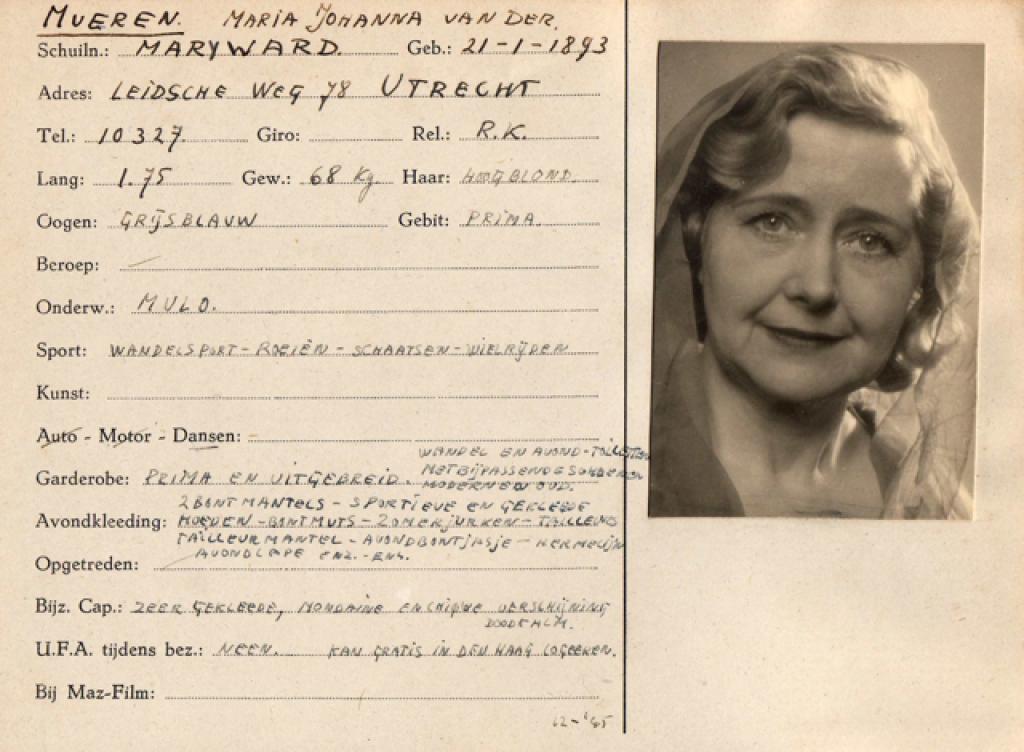 MUEREN. MARIA JOHANNA VAN DER.
Schuiln.: MARY WARD. Geb.: 21-1-1893
Adres: LEIDSCHE WEG 78 UTRECHT
Tel.: 10327. Giro: Rel.: R.K.
Lang: 1.75 Gew.: 68 Kg. Haar: HOOGBLOND.
Oogen: GRIJSBLAUW Gebit: PRIMA.
Beroep:
Onderw.: MULO.
Sport: WANDELSPORT - ROEIËN - SCHAATSEN - WIELRIJDEN
Kunst:
Auto - Motor - Dansen:
WANDEL EN AVOND-TOILETTEN
Garderobe: PRIMA EN UITGEBREID. MET BIJPASSENDE
MODERN EN OUD.
2 BONTMANTELS - SPORTIEVE EN GEKLEEDE
Avondkleeding: HOEDEN - BONTMUTS - ZOMERJURKEN - TAILLEURS
TAILLEURMANTEL - AVONDBONTJASJE - HERMELIJN
AVONDCAPE ENZ. - ENZ.
Opgetreden:
Bijz. Cap.: ZEER GEKLEEDE, MONDAINE EN CHIQUE VERSCHIJNING
U.F.A. tijdens bez.: NEEN. KAN GRATIS IN DEN HAAG LOGEEREN.
Bij Maz-Film:
12-'45